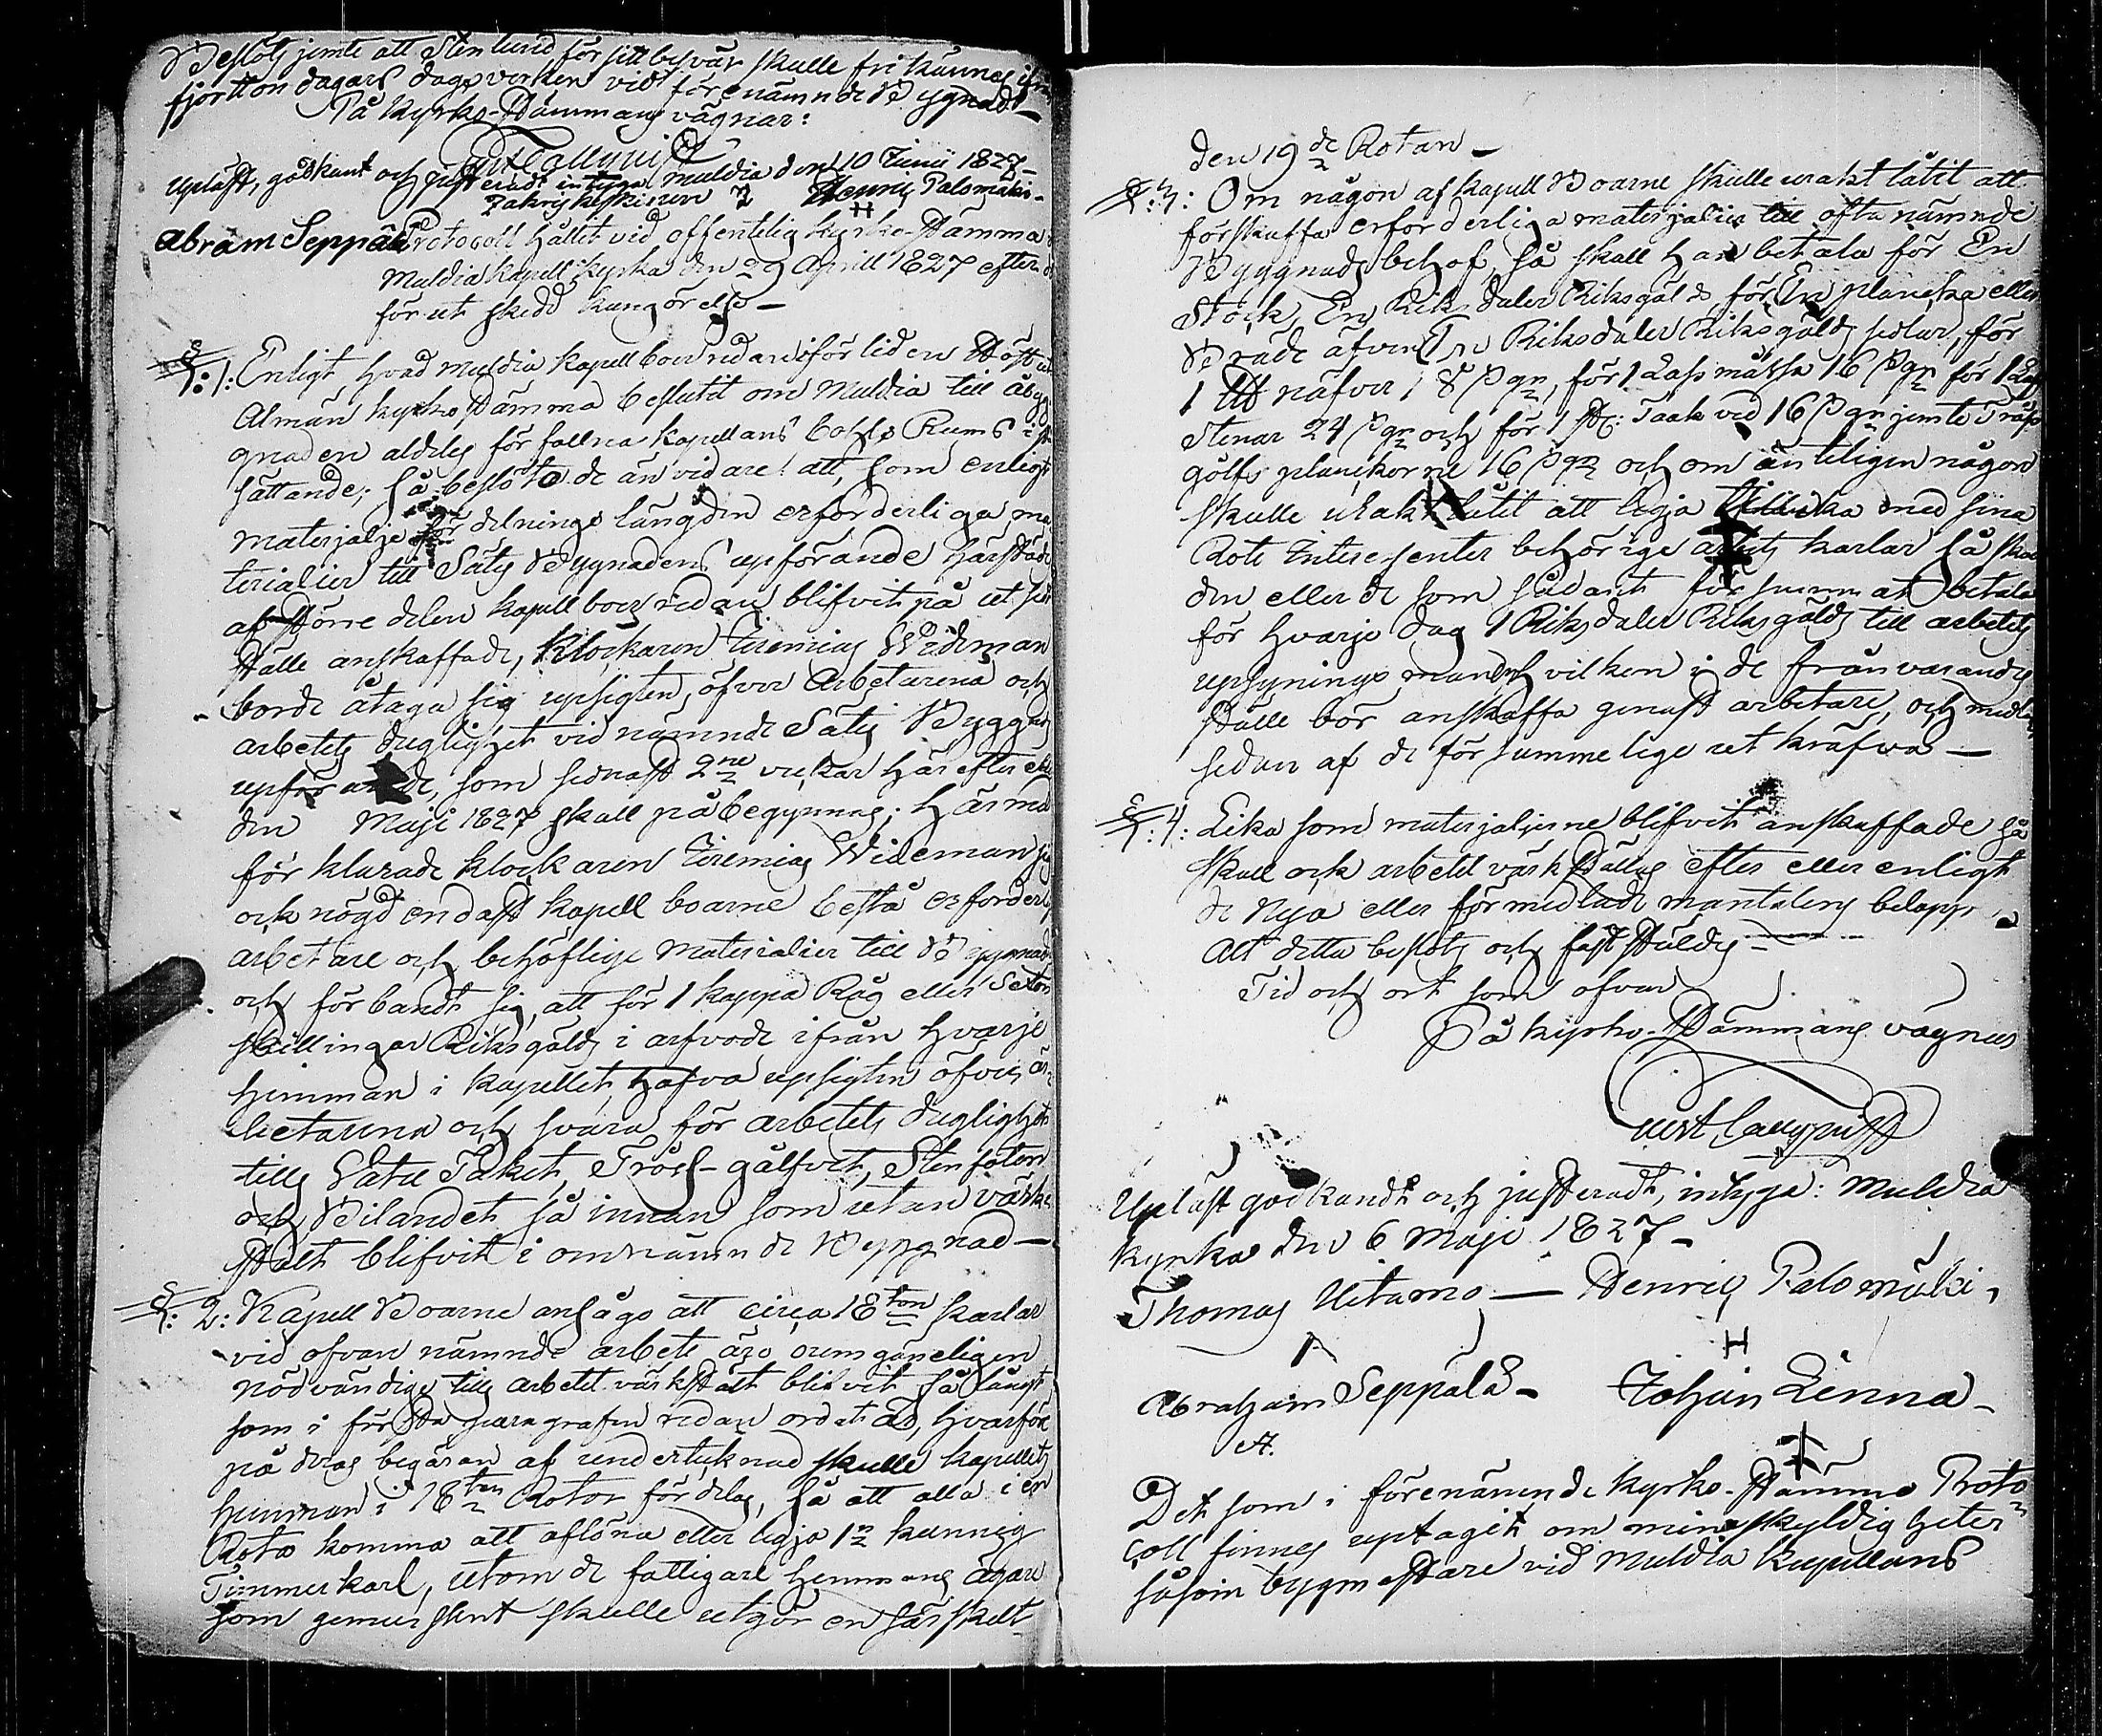 Beslöts jemte att Stenlund för sitt besvär skulle frikännas ifrån
fjortton dagars dagsverken vid förenämnde Bygnad
På Kyrko-Stämmans vägnar:
Upläst, godkänt och justeradt intygar Muldia den 10 Junii 1827
Henric Palomäki
H
Abram Seppälä
Protocoll hållit vid offentelig Kyrko-Stämma i
Muldia Kapell Kyrka den 29 Aprill 1827 efter
förut skedd kungörelse
§: 1: Enligt hvad Muldia Kapellboer redan i förliden Höst vid
Almän kyrko Stämma beslutit om Muldia till åbyg
gnaden aldeles förfallna Kapellans Bohls Rums i
sättande; så beslöto de än vidare: att, som enligt
materjalje för delnings längden erforderliga ma
terialier till Sätes Bygnadens upförande härstädes
af större delen kapellboer redan blifvit på ut sedt
ställe anskaffade, Klockaren Jeremias Wideman
borde åtaga sig upsigten, öfver Arbetarena och
arbetets duglighet vid nämnde Sätes Byggnads
upförande, som sednast 2ne veckor här efter eller
den Maji 1827 skall på begynnas; Härmed
för klarade klockaren Jeremias Wideman sig
ock nögd endast kapell boarne bestå erforderl
arbetare och behöflige Materialier till Byggnad
och för bandt sig, att för 1 kappa Råg eller Sexton
skillingar Riksgälds i arfvode ifrån hvarje
hemman i kapellet, hafva upsigten öfver ar
betarena och svara för arbetets duglighet
tills Vatu Taket, Tross-gålfvet, Stenfoten
och Bilandet så innan som utan värk
stält blifvit i omnämnde Byggnad
§: 2: Kapell Boarne ansågo att circa 18ton karlar
vid ofvan nämnde arbete äro oumgäneligen
nödvändige tills arbetet värkstält blifvit så långt
som i första paragrafen redan ordat är, hvarföre
på deras begäran af undertecknad skulle kapellets
hemman i 18ton Rotor fördelas, så att alla i en
Rota komma att aflöna eller legja 1n kunnig
Timmerkarl, utom de fattigare hemmans ägare
som gemensamt skulle utgör en särskilt
den 19de Rotan
§: 3: Om någon af kapell Boarne skulle urakt låtit att
förskaffa erforderliga materjalier till ofta nämnde
Byggnads behof, så skall han betala för En
Stock En Riksdaler Riksgälds för En plancka eller
Bräde äfven En Riksdaler Riksgälds sedlar, för
1 näfver 8 för 1 Lass måssa 16 för 1 Lass
Stenar 24 och för 1 Taak ved 16 jemte Tross
gölfs planckorne 16 och om änteligen någon
skulle urakt låtit att legja tillicka med sina
Rote Interessenter behörige arbets karlar så skall
den eller de som sådant försummat betala
för hvarje dag 1 Riksdaler Riksgälds till arbetets
upsynings man hvilken i de frånvarandes
ställe bör anskaffa genast arbetare, och medlen
sedan af de försummelige utkräfva
§: 4: Lika som materjaljerne blifvit anskaffade så
skall ock arbetet värkställas efter eller enligt
de Nya eller förmedlade mantalens belopp
Alt detta beslöts och fastställdes
Tid och ort som ofvan
På kyrko-Stämmans vägnar
Upläst godkändt och justeradt, intyga: Muldia
kyrka den 6 Maji 1827
Thomas Uitamo — Henric Palomäki
H
Abraham Seppälä — Johan Linna
A.
Det som i förenämnde kyrko-Stämmo Proto
coll finnes uptagit om mina skyldigheter
såsom bygmästare vid Muldia Kapellans